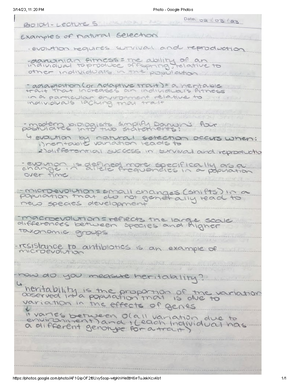 3/14/23, 11:20 PM
Photo - Google Photos
BIO1011 - LECTURE 3
Examples of natural selection
- evolution requires survival and reproduction
- darwinian fitness: the ability of an
individual to produce offspring relative to
other individuals in the population
- adaptation (or adaptive trait): a heritable
trait that increases an individual's fitness
in a particular environment relative to
individuals lacking that trait
- modern biologists simplify Darwin's four
postulates into two statements:
evolution by natural selection occurs when:
heritable variation leads to
differential success in survival and reproduction
- evolution is defined more specifically as a
change in allele frequencies in a population
over time
- microevolution: small changes (shifts) in a
population that did not generally lead to
new species development
- macroevolution: reflects the large scale
differences between species and higher
taxonomic groups
- resistance to antibiotics is an example of
microevolution
how do you measure heritability?
heritability is the proportion of the variation
observed in a population that is due to
variation in the effects of genes
varies between 0 (all variation due to
environment) and 1 (each individual has
a different genotype for a trait)
1/1